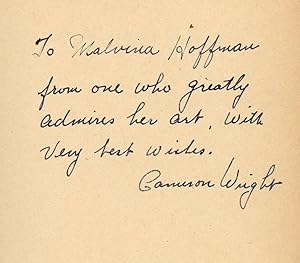 To Malvina Hoffman
from one who greatly
admires her art, with
Very best wishes.
Cameron Wright